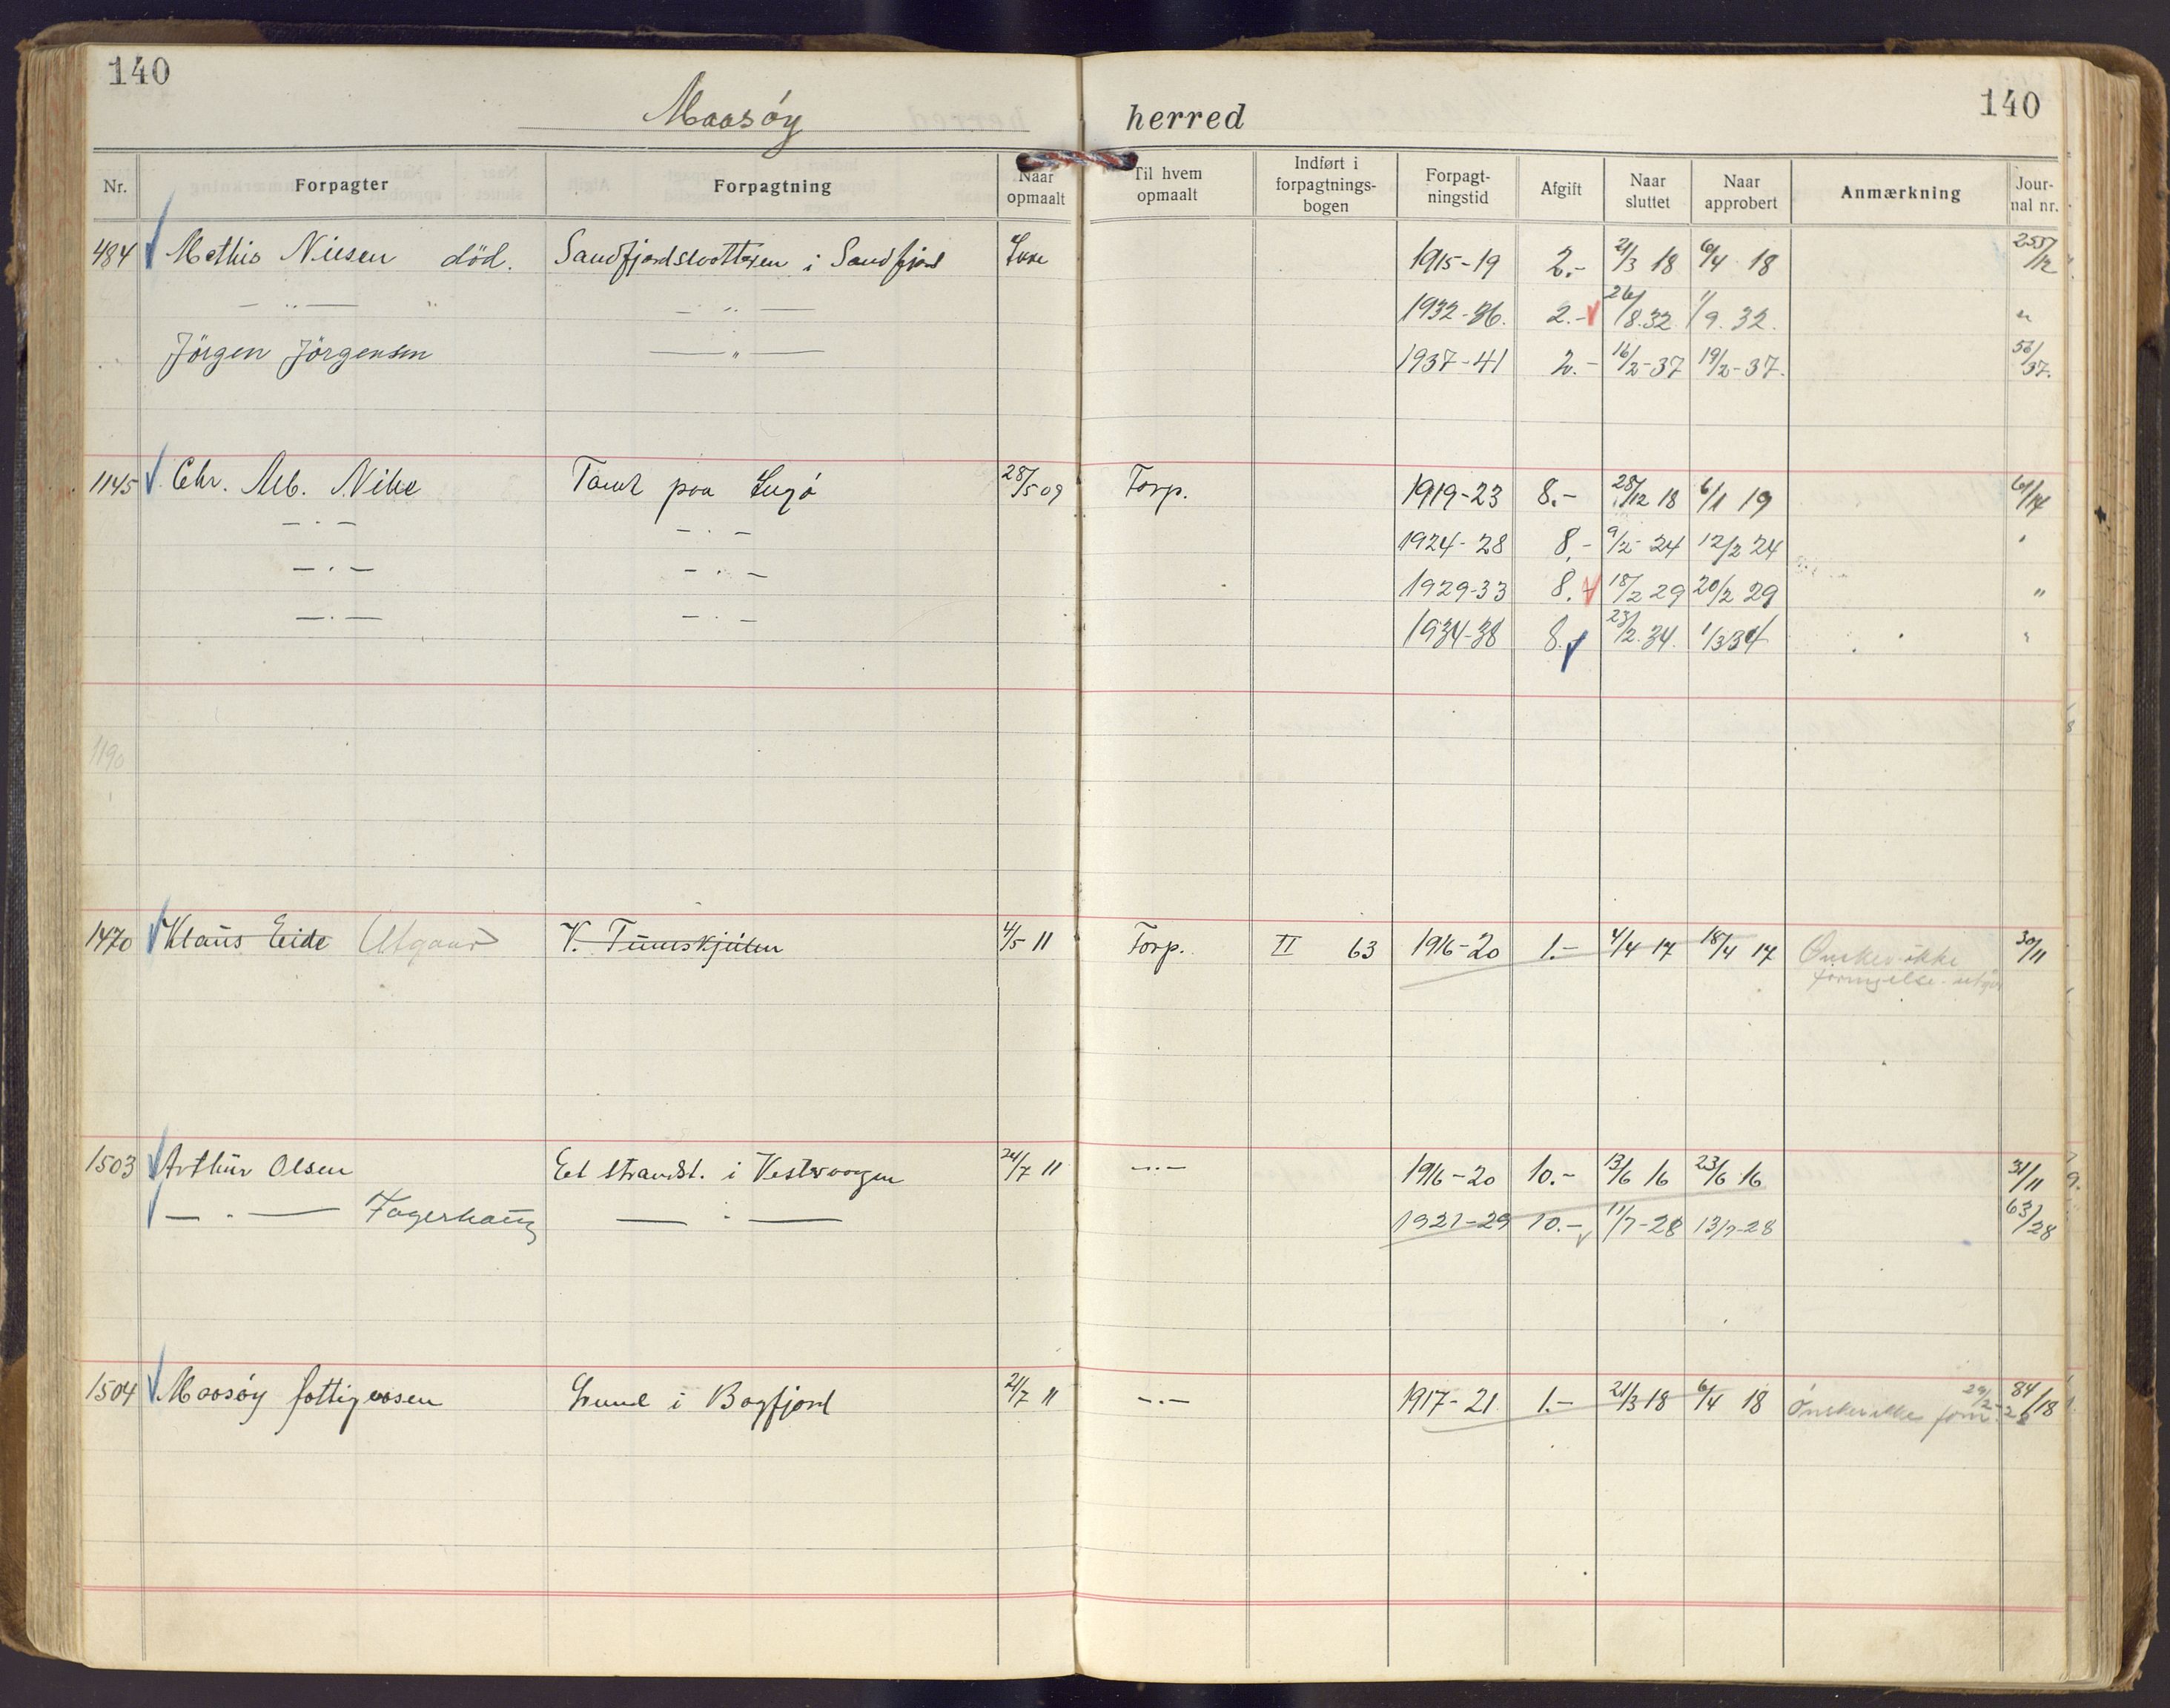 140
140
Maasøy herred
Nr. Forpagter Forpagtning Naar opmaalt Til hvem opmaalt Indført i forpagtnings-bogen Forpagt-ningstid Afgift Naar sluttet Naar approbert Anmærkning Jour-nal nr.
484 Mathis Nilsen död. i Sandfjord 1915-19 2.- 21/3 18 6/4 18 255/12
— " — " — " — 1932-36. 2.- 26/8.32 1/9.32. "
Jörgen Jörgensen — " — 1937-41 2.- 16/2-37 19/2-37. 56/37.
1145 Chr. Alb. Nike Tomt paa Ingø 28/5 09 Forp. 1919-23 8.- 28/12 18 6/1 19 61/14
— . — — . — 1924-28 8.- 9/2-24 12/2 24 "
— . — — . — 1929-33 8.- 18/2 29 20/2 29 "
— . — — . — 1934-38 8.- 23/2.34. 1/3 34 "
1190
1470 Klaus Eide Utgaar V. 4/5 11 Forp. II 63 1916-20 1.- 4/4 17 18/4 17 Ønsker ikke 30/11
fornyelse. utgår
1503 Arthur Olsen Et strandst. i Vestvaagen 24/7 11 — . — 1916-20 10.- 13/6 16 23/6 16 31/11
— . — Fagerhaug — . — 1921-29 10.- 11/7-28 13/7-28 63/28
1504 Maasøy fattigvæsen Grund i Bagfjord 21/7 11 — . — 1917-21 1.- 21/3 18 6/4 18 Ønsker ikke forn. 29/2-22 84/18